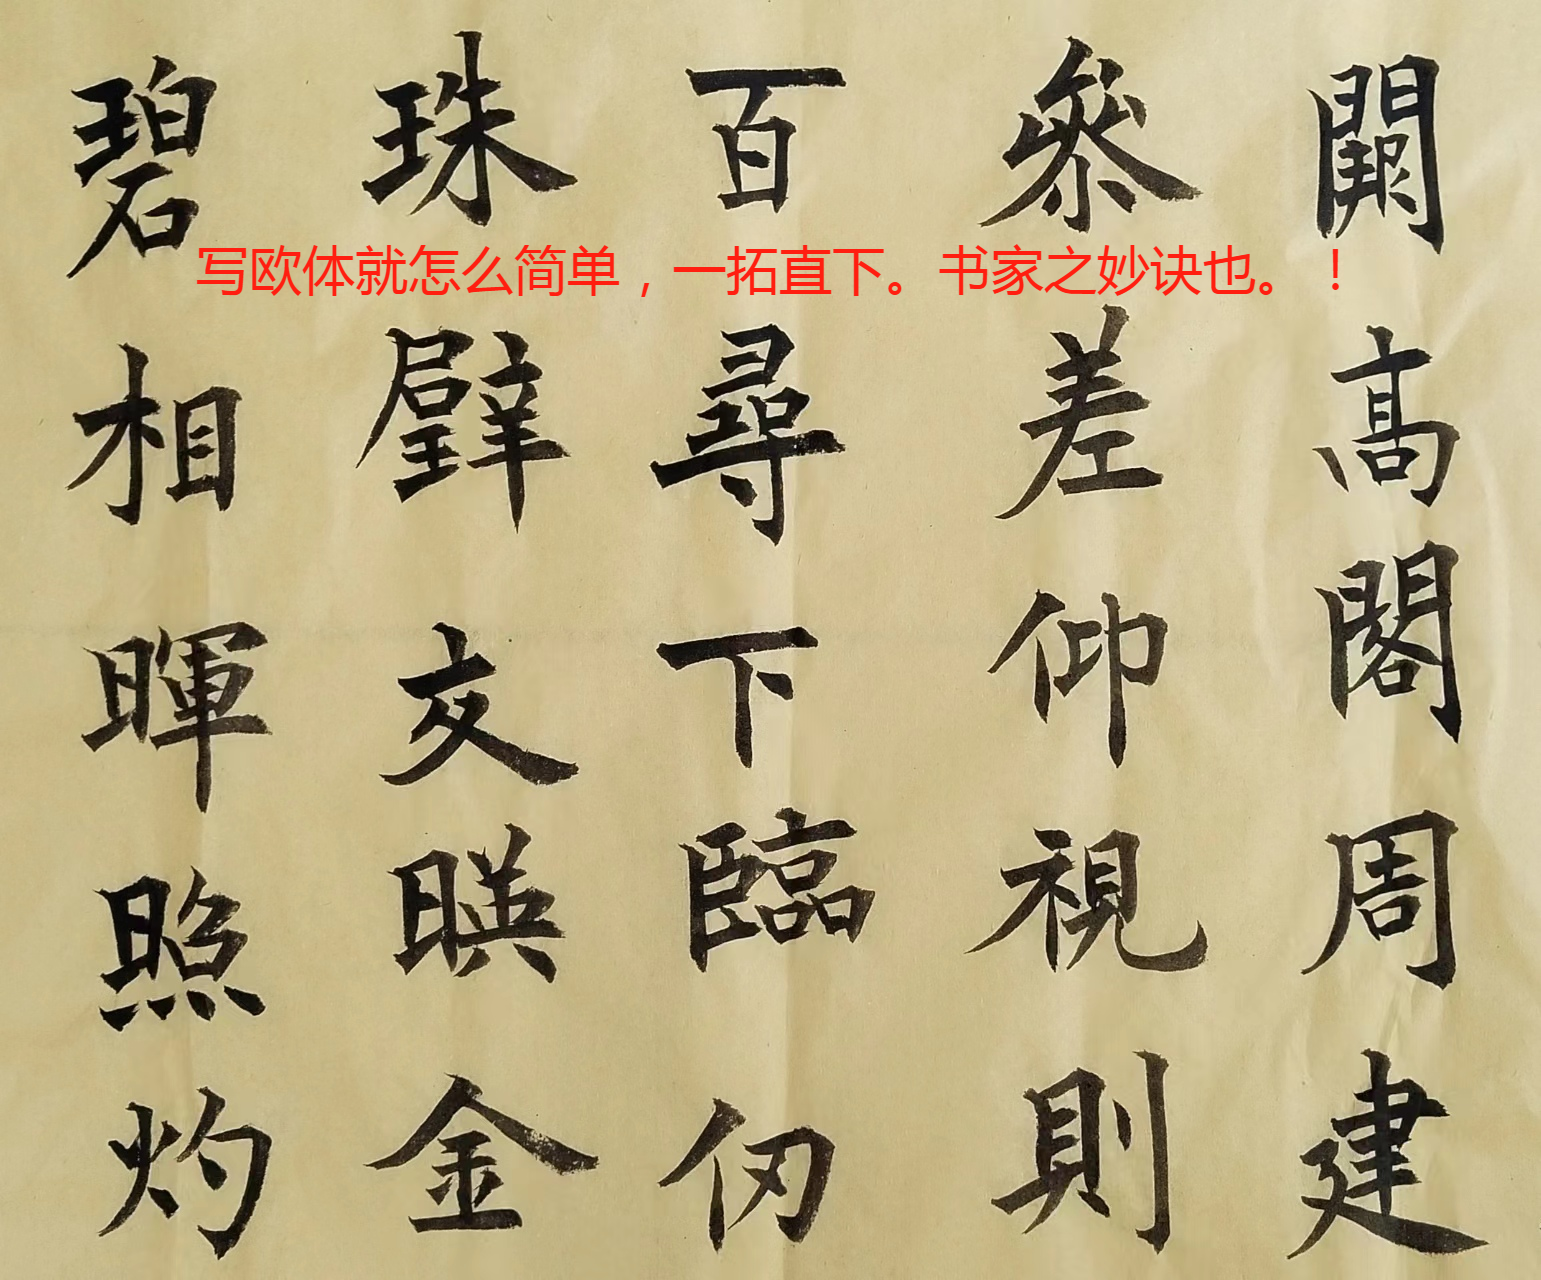 闕高閣周建
參差仰視則
百尋下臨仞
珠璧交暎金
碧相暉照灼
写欧体就怎么简单，一拓直下。书家之妙诀也。！